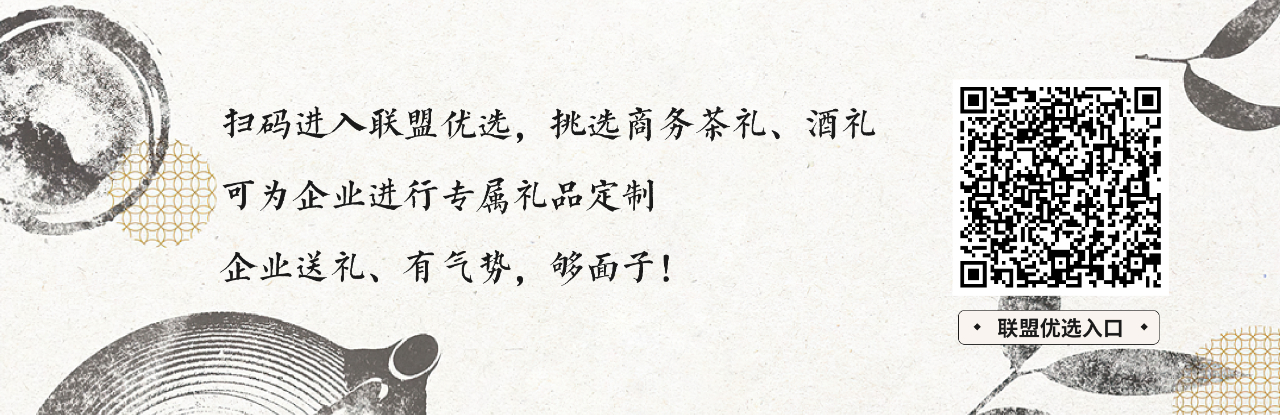 扫码进入联盟优选，挑选商务茶礼、酒礼
可为企业进行专属礼品定制
企业送礼、有气势，够面子！
联盟优选入口